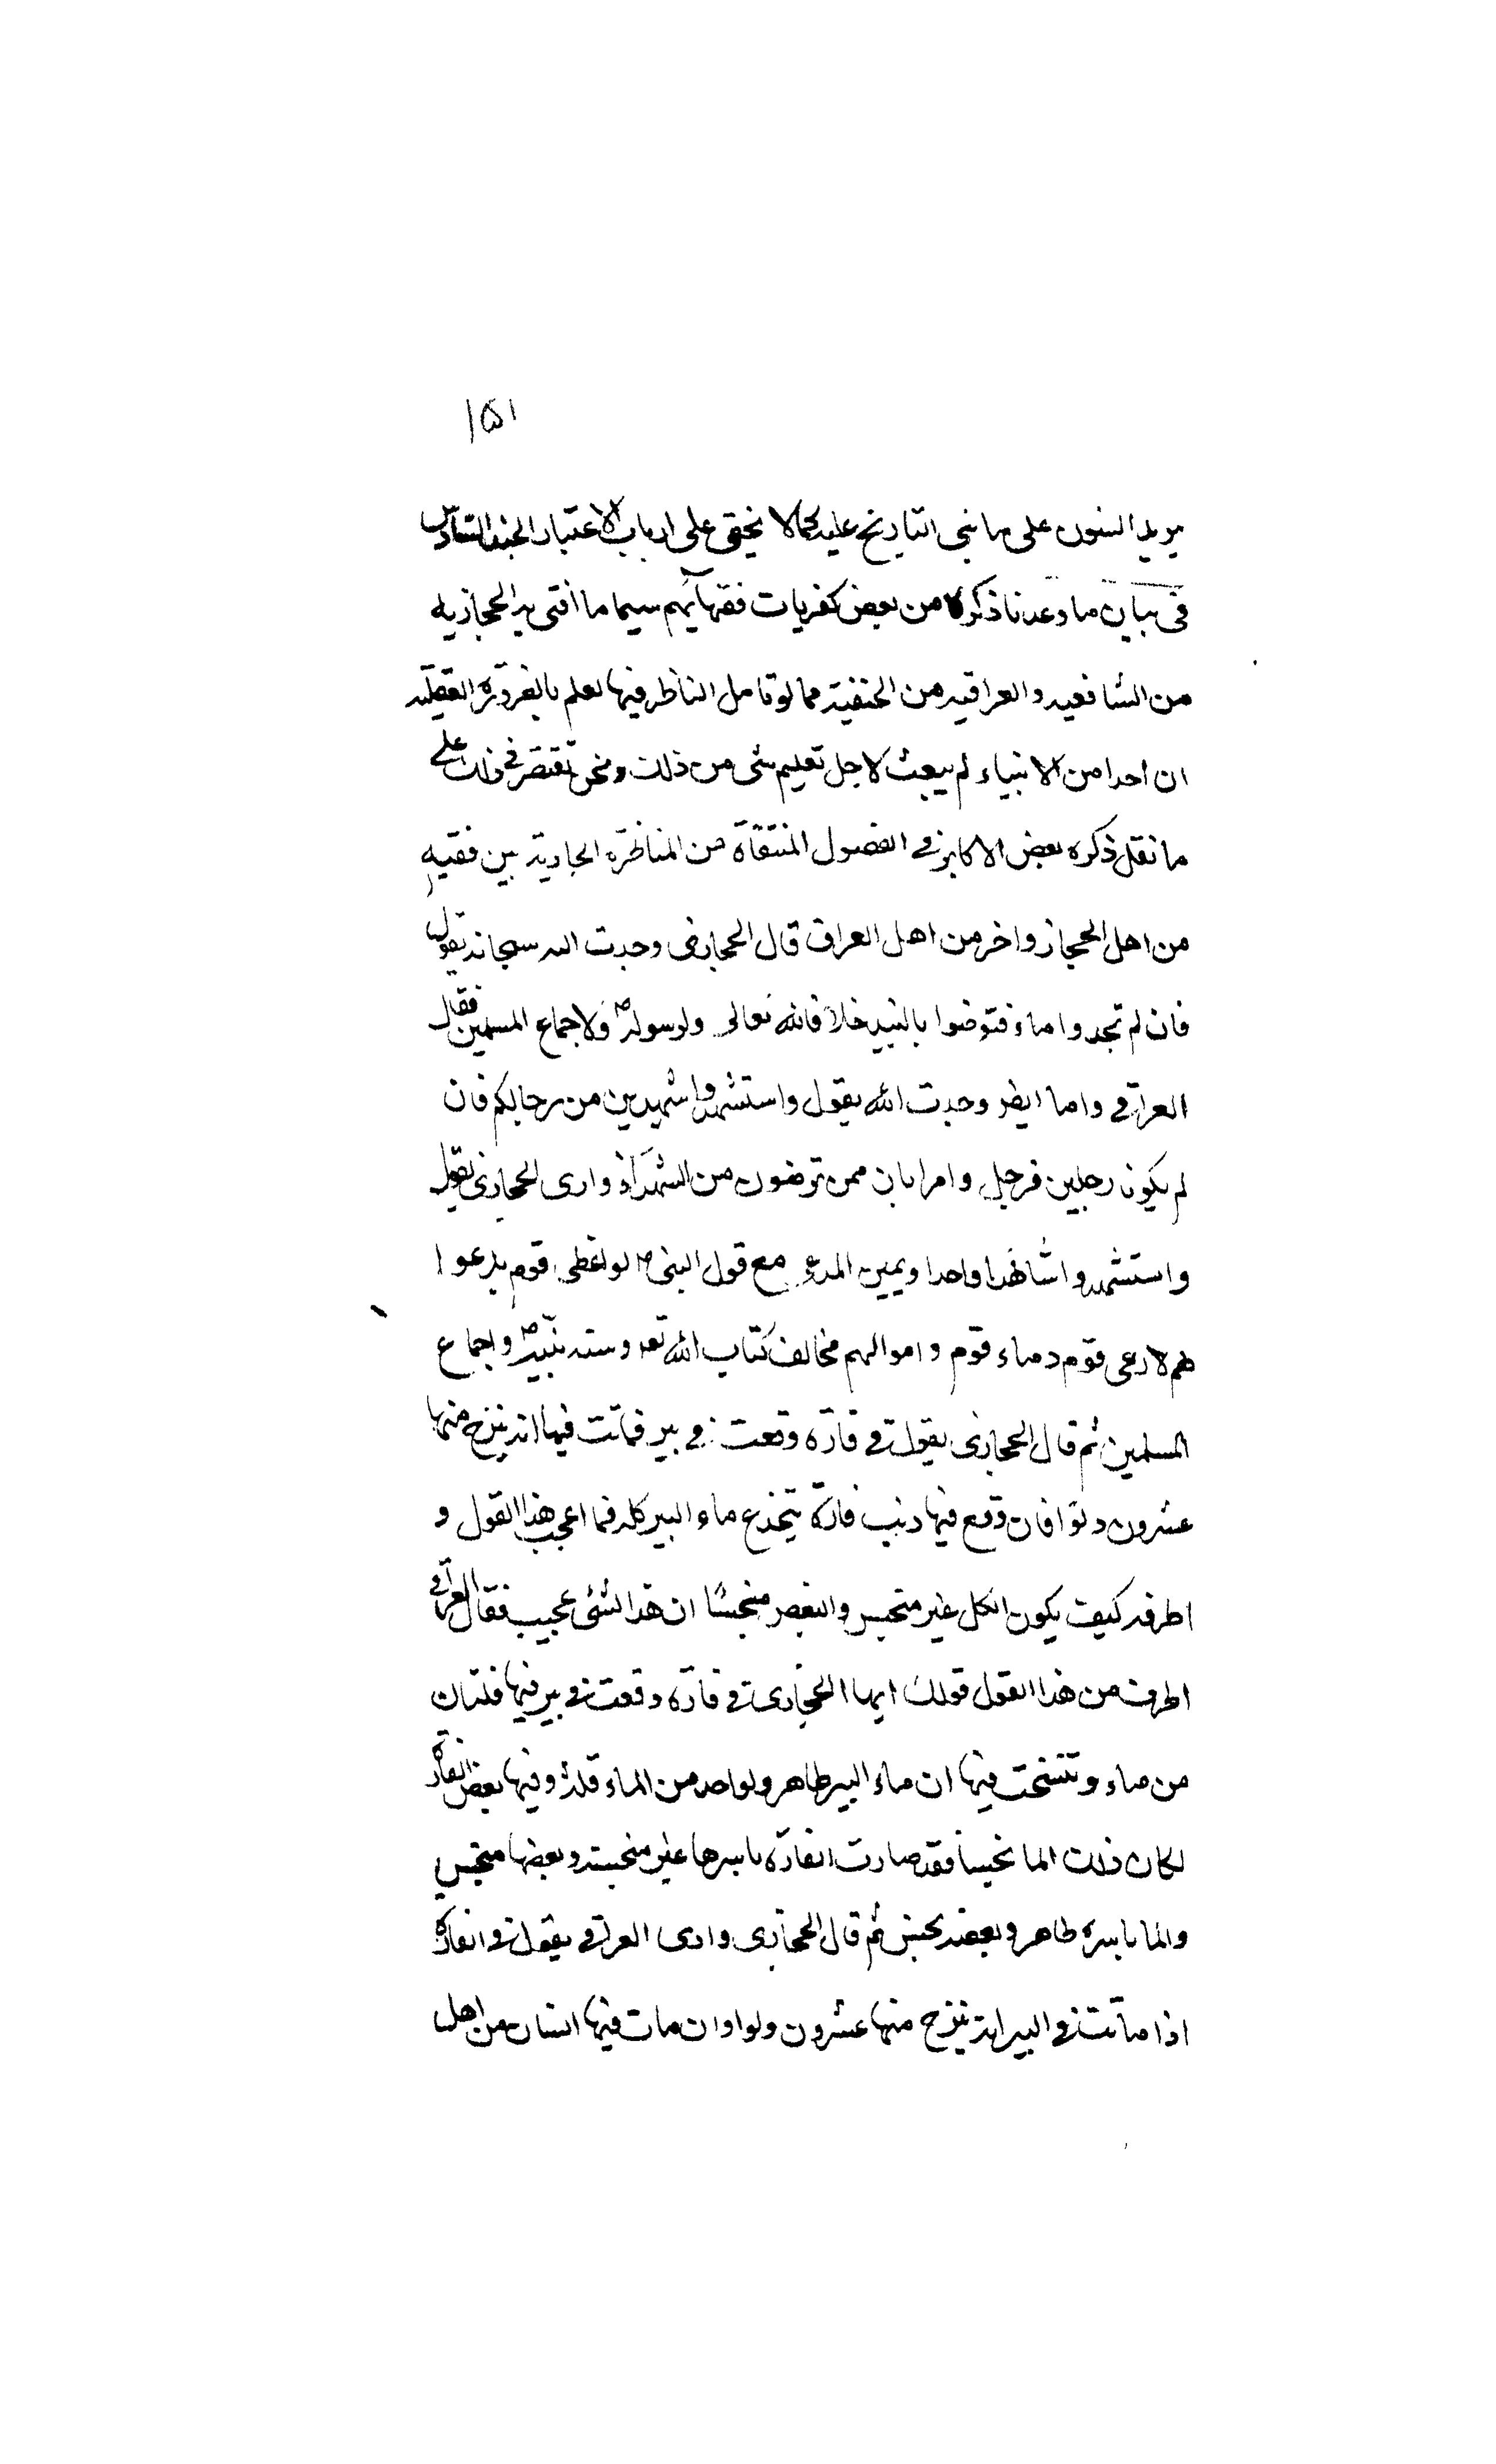 ١٥١
يريد السنون على ما بنى التاريخ عليه كما لا يخفى على ارباب الاعتبار الجند السادس
فى بيان ما وعدنا ذكره من بعض كفريات فقهائهم سيما ما افتى به الحجازيه
من الشافعيه والعراقيه من الحنفية مما لو تامل الناظر فيها لعلم بالضرورة العقلية
ان احدا من الانبياء لم يبعث لاجل تعليم شى من ذلك ونحن نقتصر فى ذلك على
ما نقل ذكره بعض الاكابر فى الفصول المنتقاة من المناظرة الجارية بين فقيه
من اهل الحجاز واخر من اهل العراق قال الحجازى وجدت الله سبحانه يقول
فان لم تجدوا ماء فتوضوا بالنبيذ خلافا لله تعالى ولرسوله ص ولاجماع المسلمين فقال
العراقى واما ايضا وجدت الله يقول واستشهدوا شهيدين من رجالكم فان
لم يكونا رجلين فرجل وامراتان ممن ترضون من الشهداء وارى الحجازى يقول
واستشهدوا شاهدا واحدا ويمين المدعى مع قول النبى ص لو اعطى قوم بدعوا
هم لادعى قوم دماء قوم واموالهم مخالف كتاب الله تعه وسنه نبيه ص واجماع
المسلمين ثم قال الحجازى يقول فى فارة وقعت فى بير فماتت فيها انه ينزح منها
عشرون دلوا فان وقع فيها ذنب فارة ينزح ماء البير كله فما اعجب هذا القول و
اطرفه كيف يكون الكل غير منجس والبعض منجسا ان هذا لشئ عجيب فقال العراقى
اطرف من هذا القول قولك ايها الحجازى فى فارة وقعت فى بير فيها قلتان
من ماء وتفسخت فيها ان ماء البير طاهر ولو اخذ من الماء قلة وفيها بعض الفارة
لكان ذلك الما نجسا فقد صارت الفارة باسرها غير منجسة وبعضها منجس
والما باسره طاهر وبعضه نجس ثم قال الحجازى وارى العراقى يقول فى الفارة
اذا ماتت فى البير انه ينزح منها عشرون دلوا وان مات فيها انسان من اهل